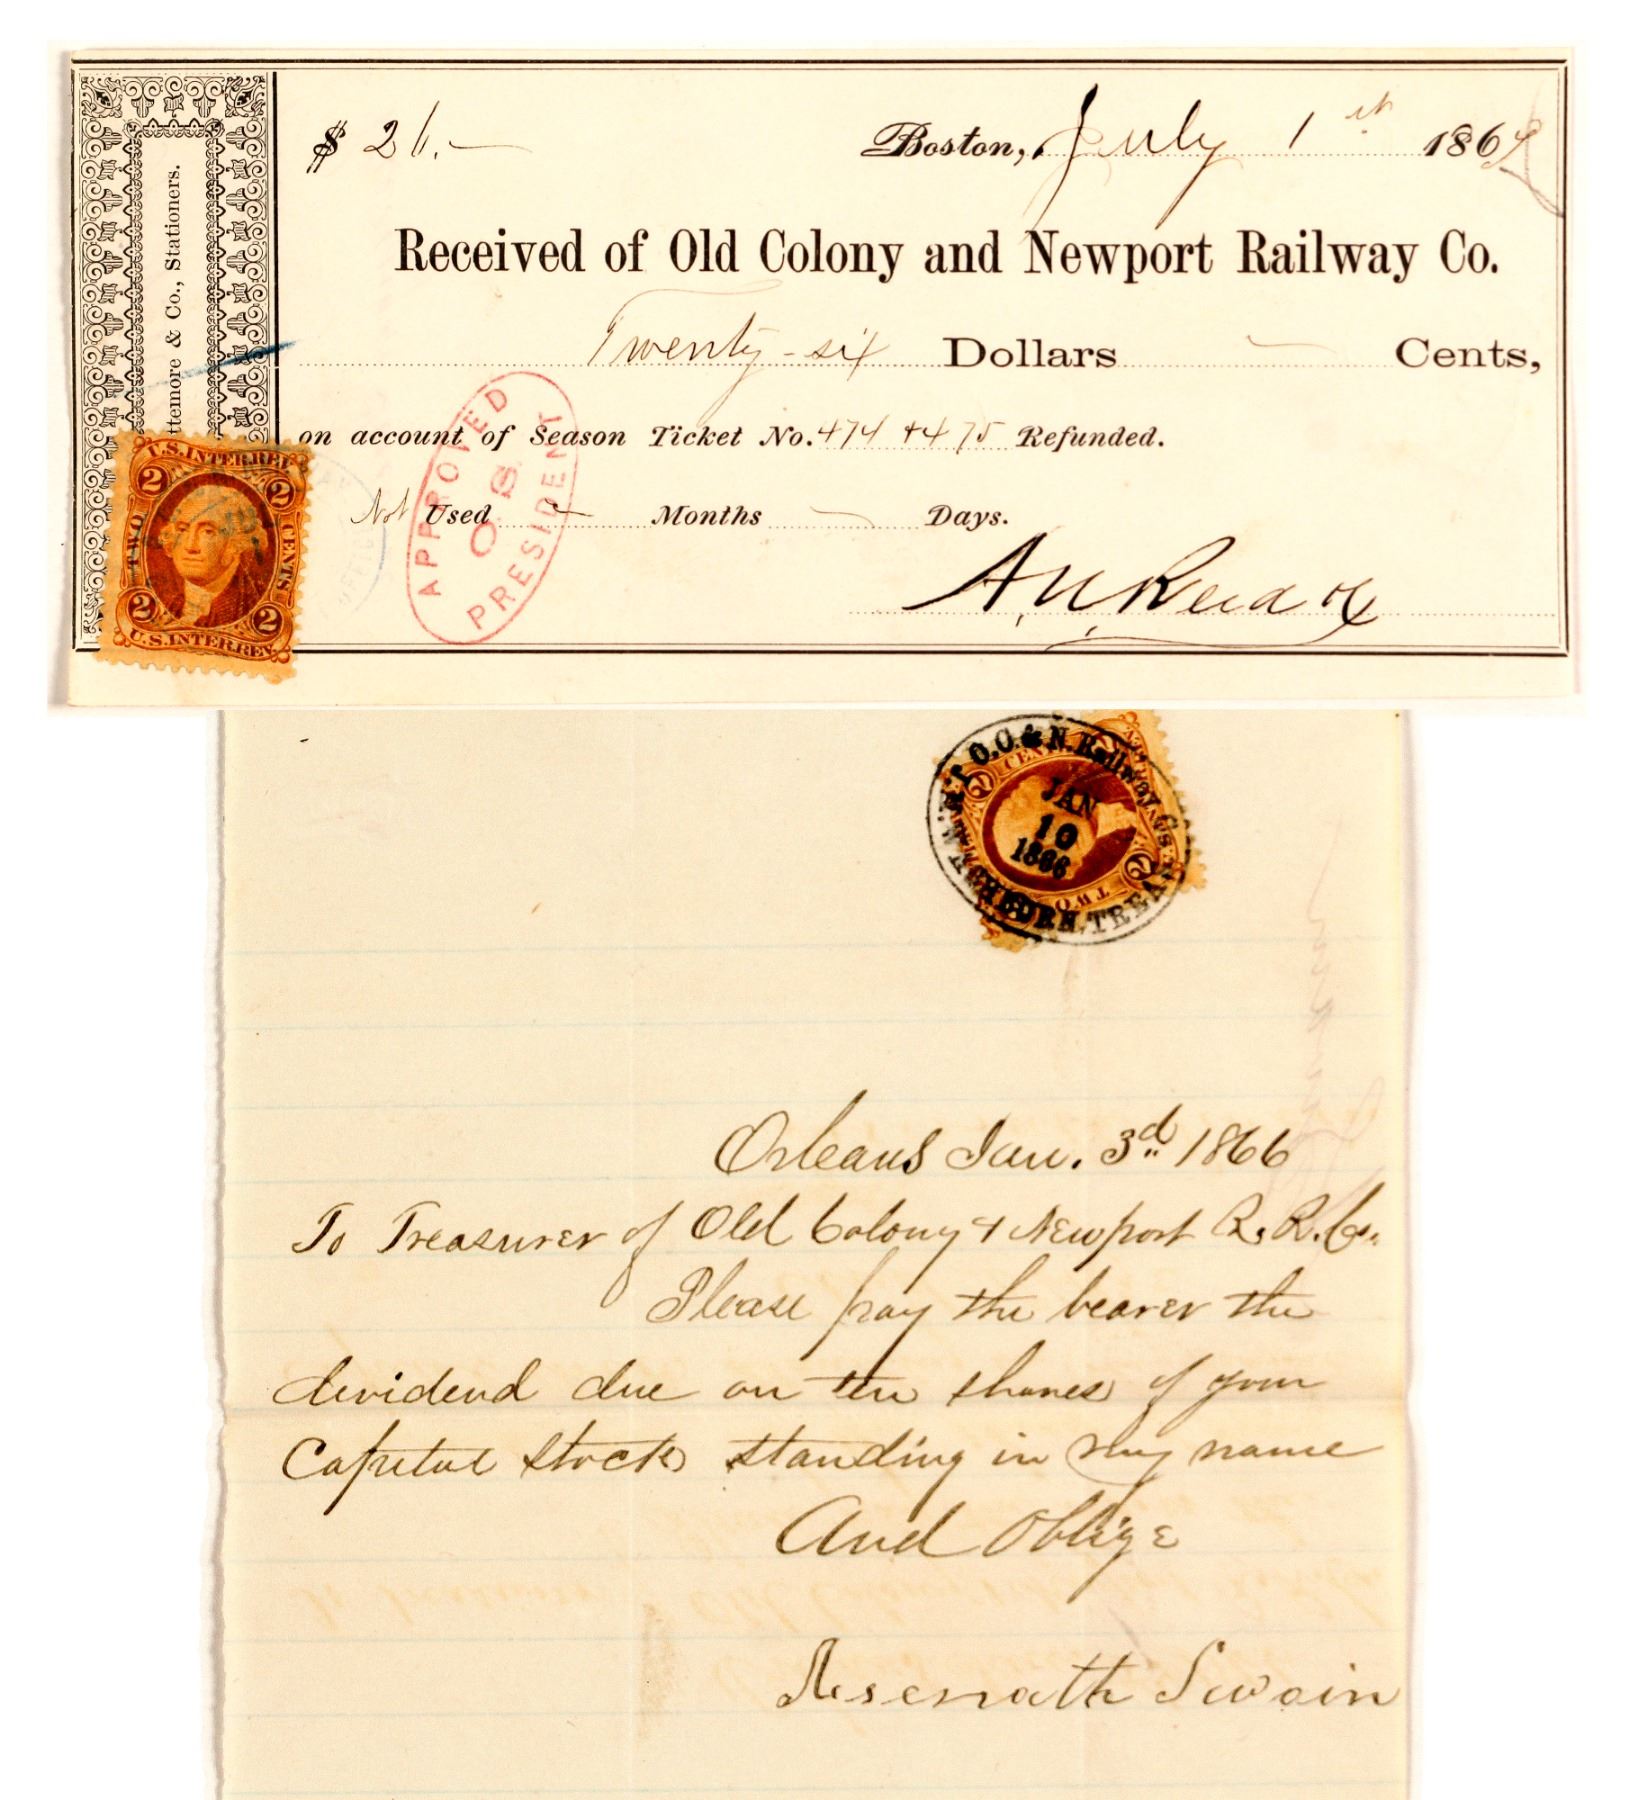 $ 26.— Boston, July 1st 186
Received of Old Colony and Newport Railway Co.
Twenty-six Dollars — Cents,
on account of Season Ticket No. 474 + 475 Refunded.
Not Used — Months — Days.
ttemore & Co., Stationers.
U.S. INTER. REV.
2 2
TWO CENTS
2 2
U.S. INTER. REV.
APPROVED
PRESIDENT
O.C. & N. Railway Co.
JAN
10
1866
TREAS
CEN
TWO
2 2
Orleans Jan. 3d 1866
To Treasurer of Old Colony & Newport R. R. Co.
Please pay the bearer the
dividend due on ten shares of your
Capital Stock standing in my name
And Oblige
Asenath Swain